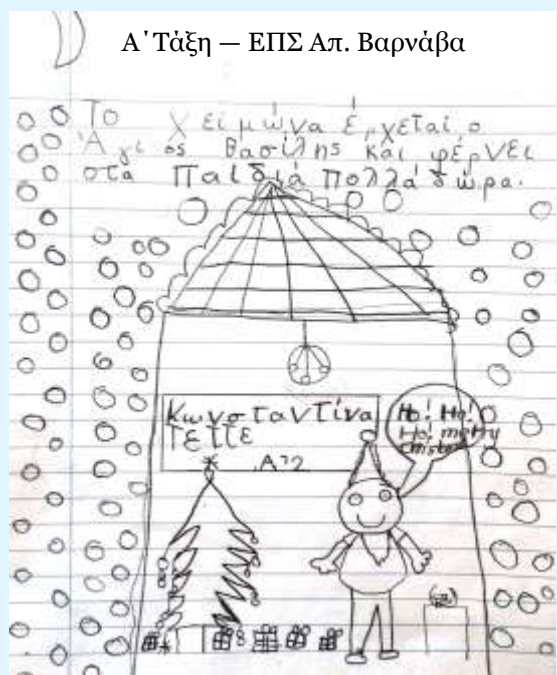 Α΄ Τάξη — ΕΠΣ Απ. Βαρνάβα
Το Χειμώνα έρχεται ο
Άγιος Βασίλης και φέρνει
στα Παιδιά πολλά δώρα.
Κωνσταντίνα
ΤΕΓΓΕ
Ho! Ho!
Ho! merry